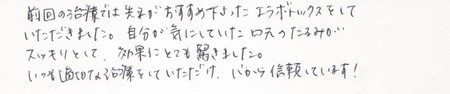 前回の治療では先生がおすすめ下さったエラボトックスをして
いただきました。自分が気にしていた口元のたるみが
スッキリとして、効果にとても驚きました。
いつも適切な治療をしていただけ、心から信頼しています!